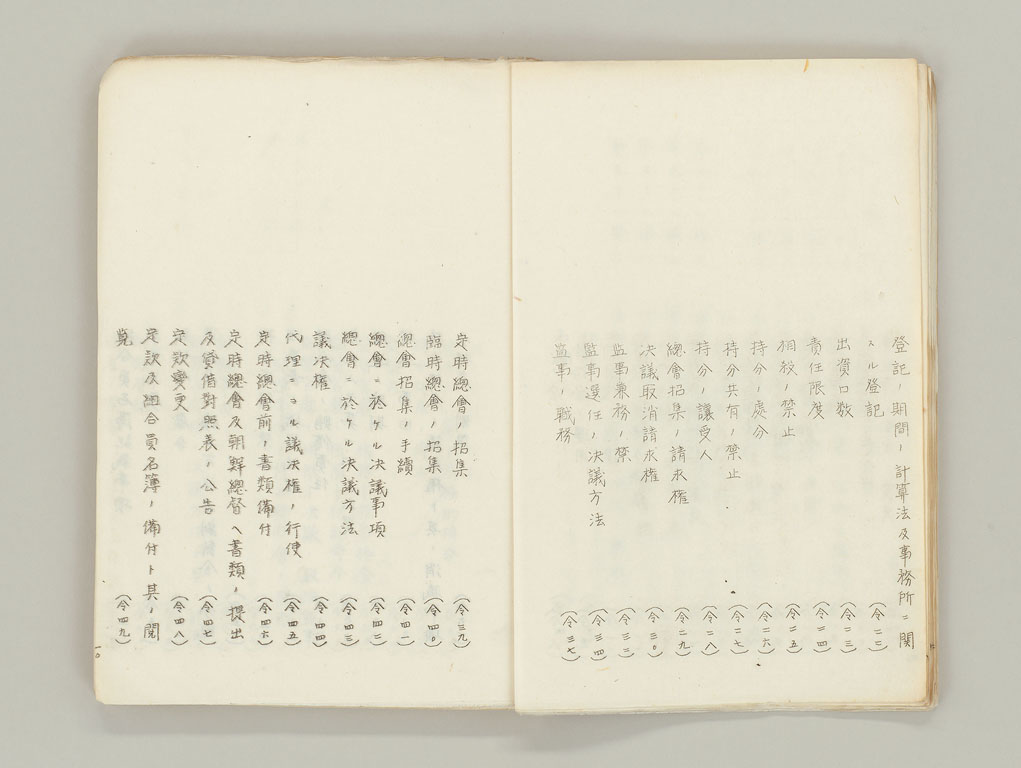 登記ノ期間ノ計算法及事務所ニ関
スル登記（令二二）
出資口数（令二三）
責任限度（令二四）
相殺ノ禁止（令二五）
持分ノ処分（令二六）
持分共有ノ禁止（令二七）
持分ノ譲受人（令二八）
總會招集ノ請求権（令二九）
決議取消請求権（令三〇）
監事兼務ノ禁（令三三）
監事選任ノ決議方法（令三四）
監事ノ職務（令三七）
定時總會ノ招集（令三九）
臨時總會ノ招集（令四〇）
總會招集ノ手續（令四一）
總會ニ於ケル決議事項（令四二）
總會ニ於ケル決議方法（令四三）
議決権（令四四）
代理ニヨル議決権ノ行使（令四五）
定時總會前ノ書類備付（令四六）
定時總會及朝鮮總督ヘ書類ノ提出
及貸借對照表ノ公告（令四七）
定款變更（令四八）
定款及組合員名簿ノ備付ト其ノ閲
覧（令四九）
一〇